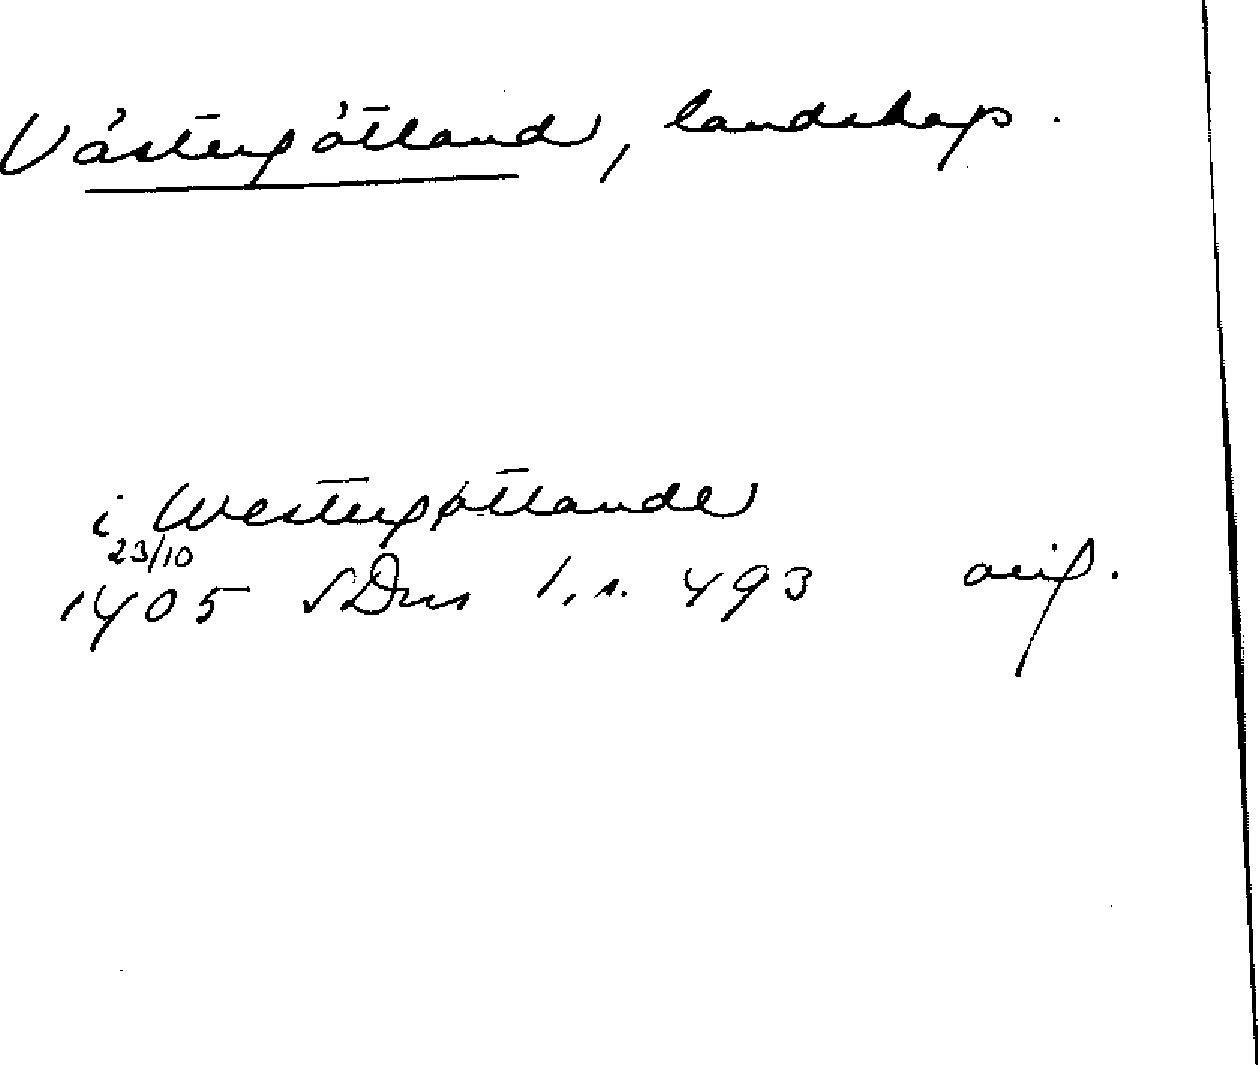 Västergötland, landskap.
i Westergøtlande
23/10
1405 SDns 1, s. 493 orig.